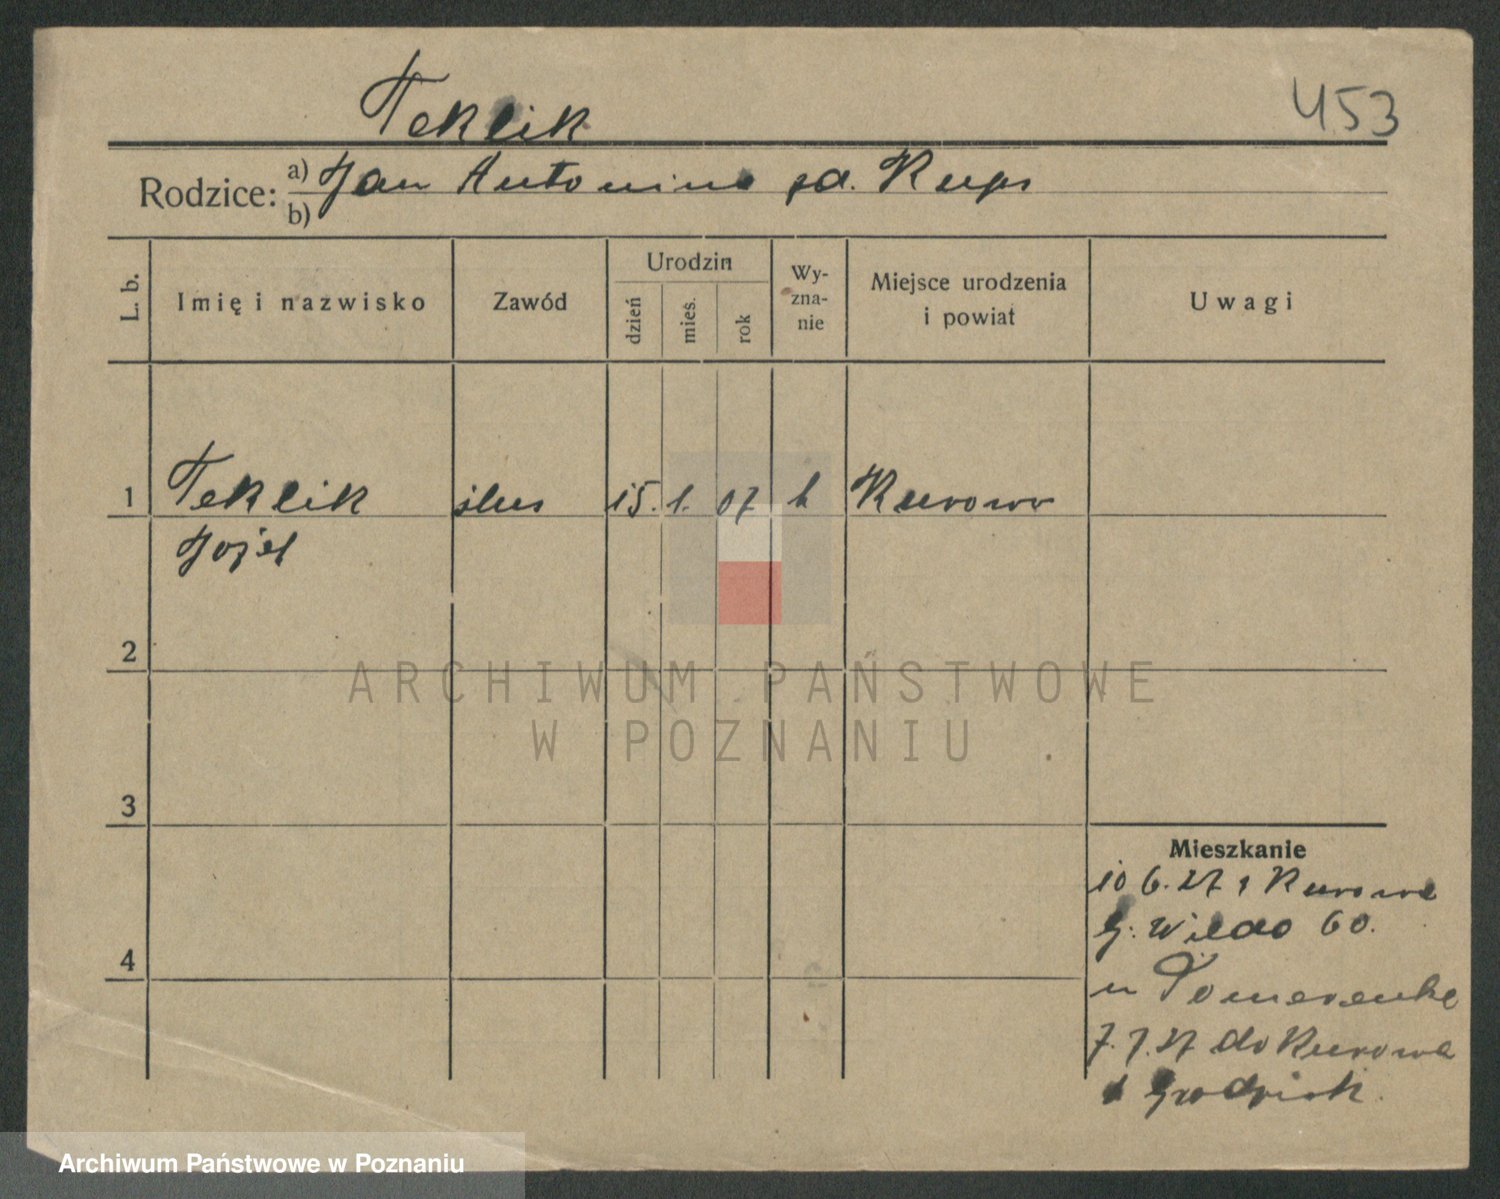 Teklik
453
Rodzice: a) Jan Antonina zd. Kups
b)
L. b. Imię i nazwisko Zawód Urodzin dzień mieś. rok Wy-zna-nie Miejsce urodzenia i powiat Uwagi
1 Teklik ślus 15. 1. 07 k Kurowo
Józef
2
3
4
Mieszkanie
10 6. 27 z Kurowa
G. Wilda 60.
u Pomerenke
7. 7. 27 do Kurowa
Grodzisk.
ARCHIWUM PAŃSTWOWE
W POZNANIU .
Archiwum Państwowe w Poznaniu